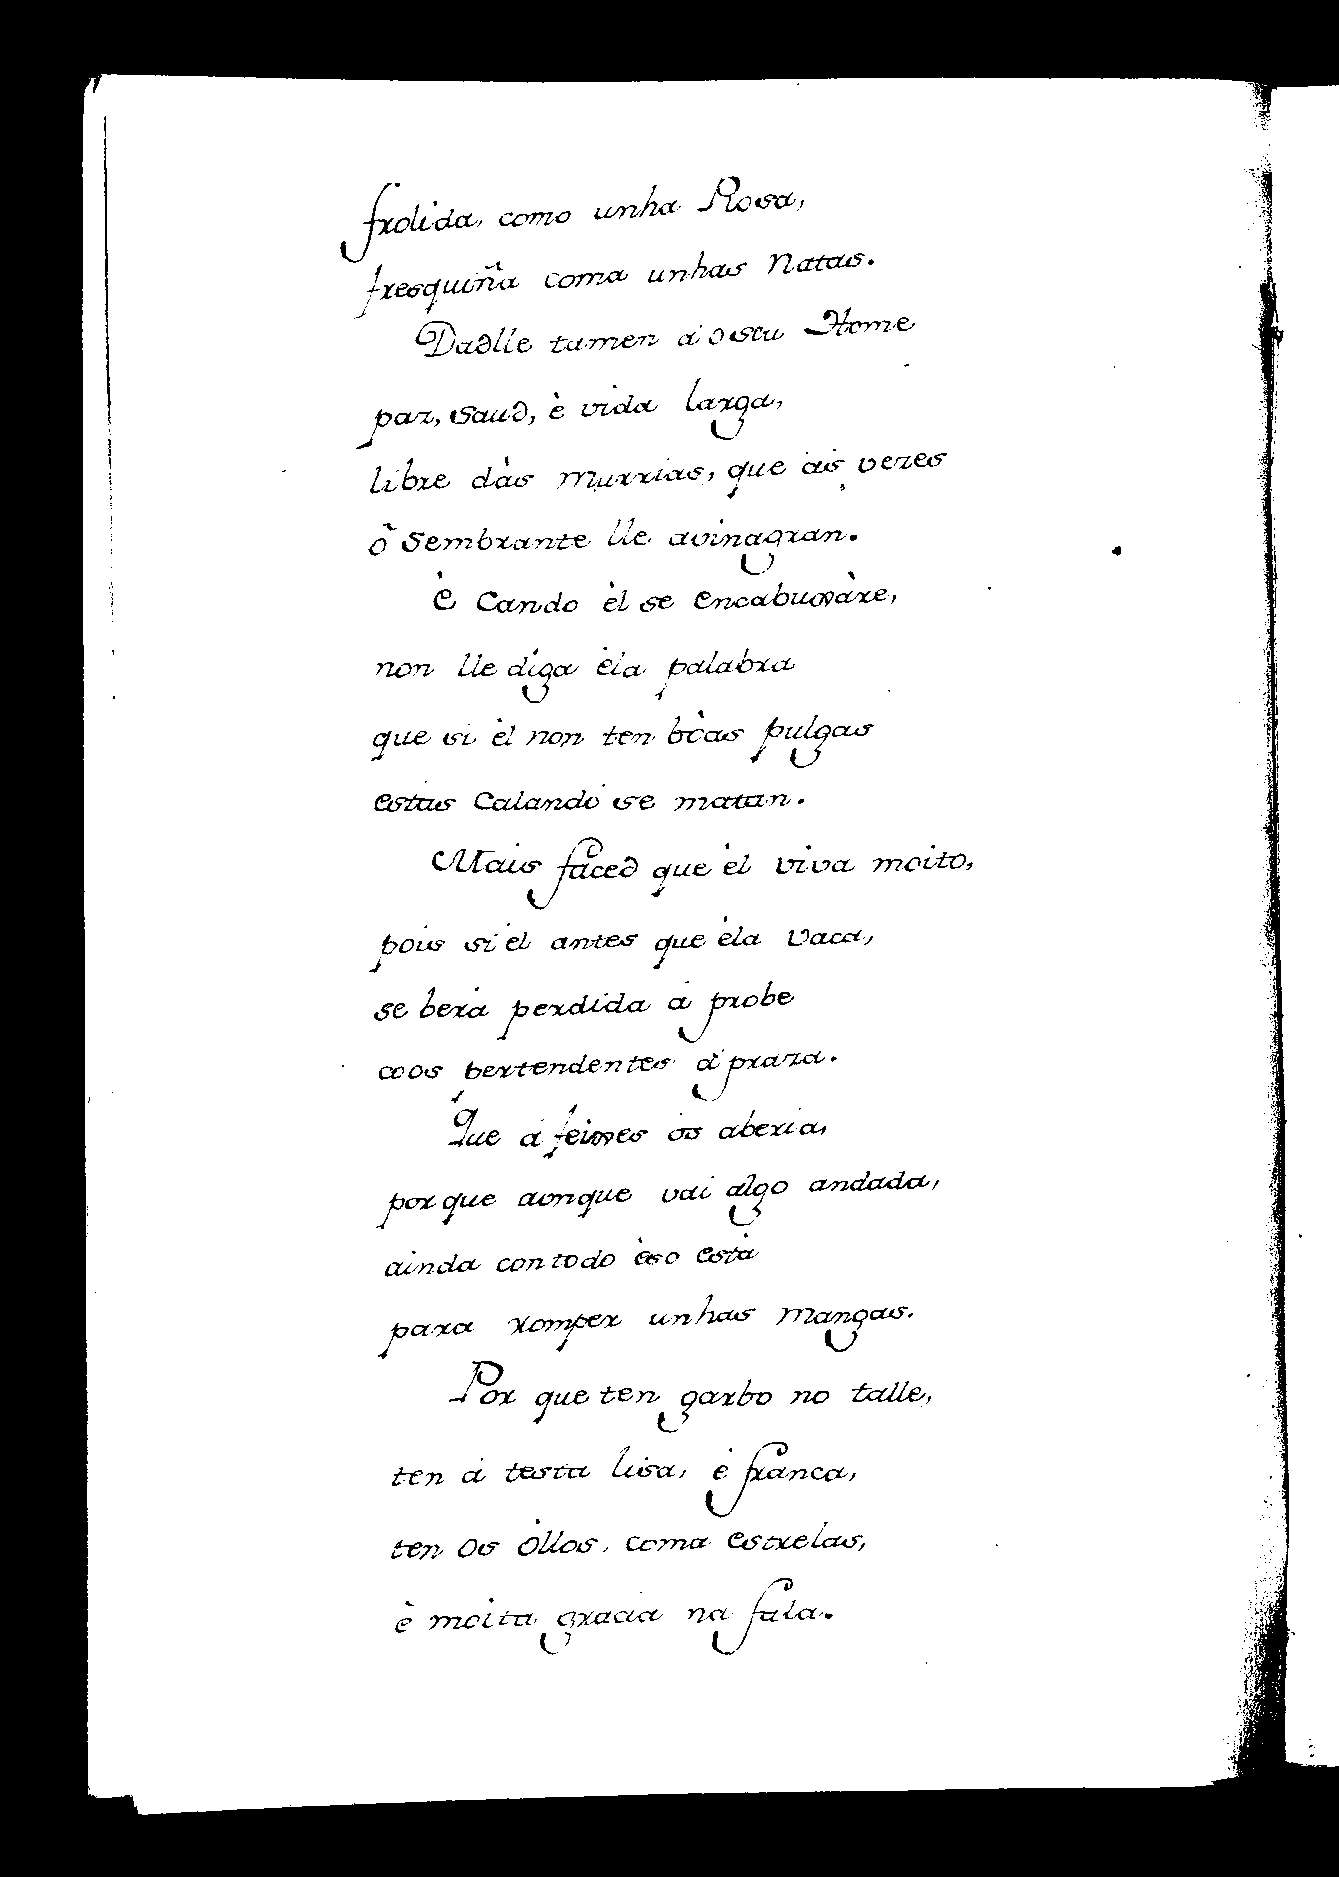 frolida, como unha Rosa,
fresquiña coma unhas Natas.
Dadlle tamen á o seu Home
paz, saud, è vida larga,
libre dàs murrias, que ás vezes
ò Sembrante lle avinagran.
È Cando èl se encabuxàre,
non lle diga èla palabra
que si èl non ten bòas pulgas
estas Calando se matan.
Mais faced que èl viva moito,
pois si èl antes que èla vaca,
se berá perdida á probe
cos pertendentes á praza.
Que á feixes os aberia,
por que aonque vai algo andada,
ainda con todo èso està
para romper unhas mangas.
Por que ten garbo no talle,
ten á testa lisa, è franca,
ten os òllos, coma estrelas,
è moita gracia na fala.